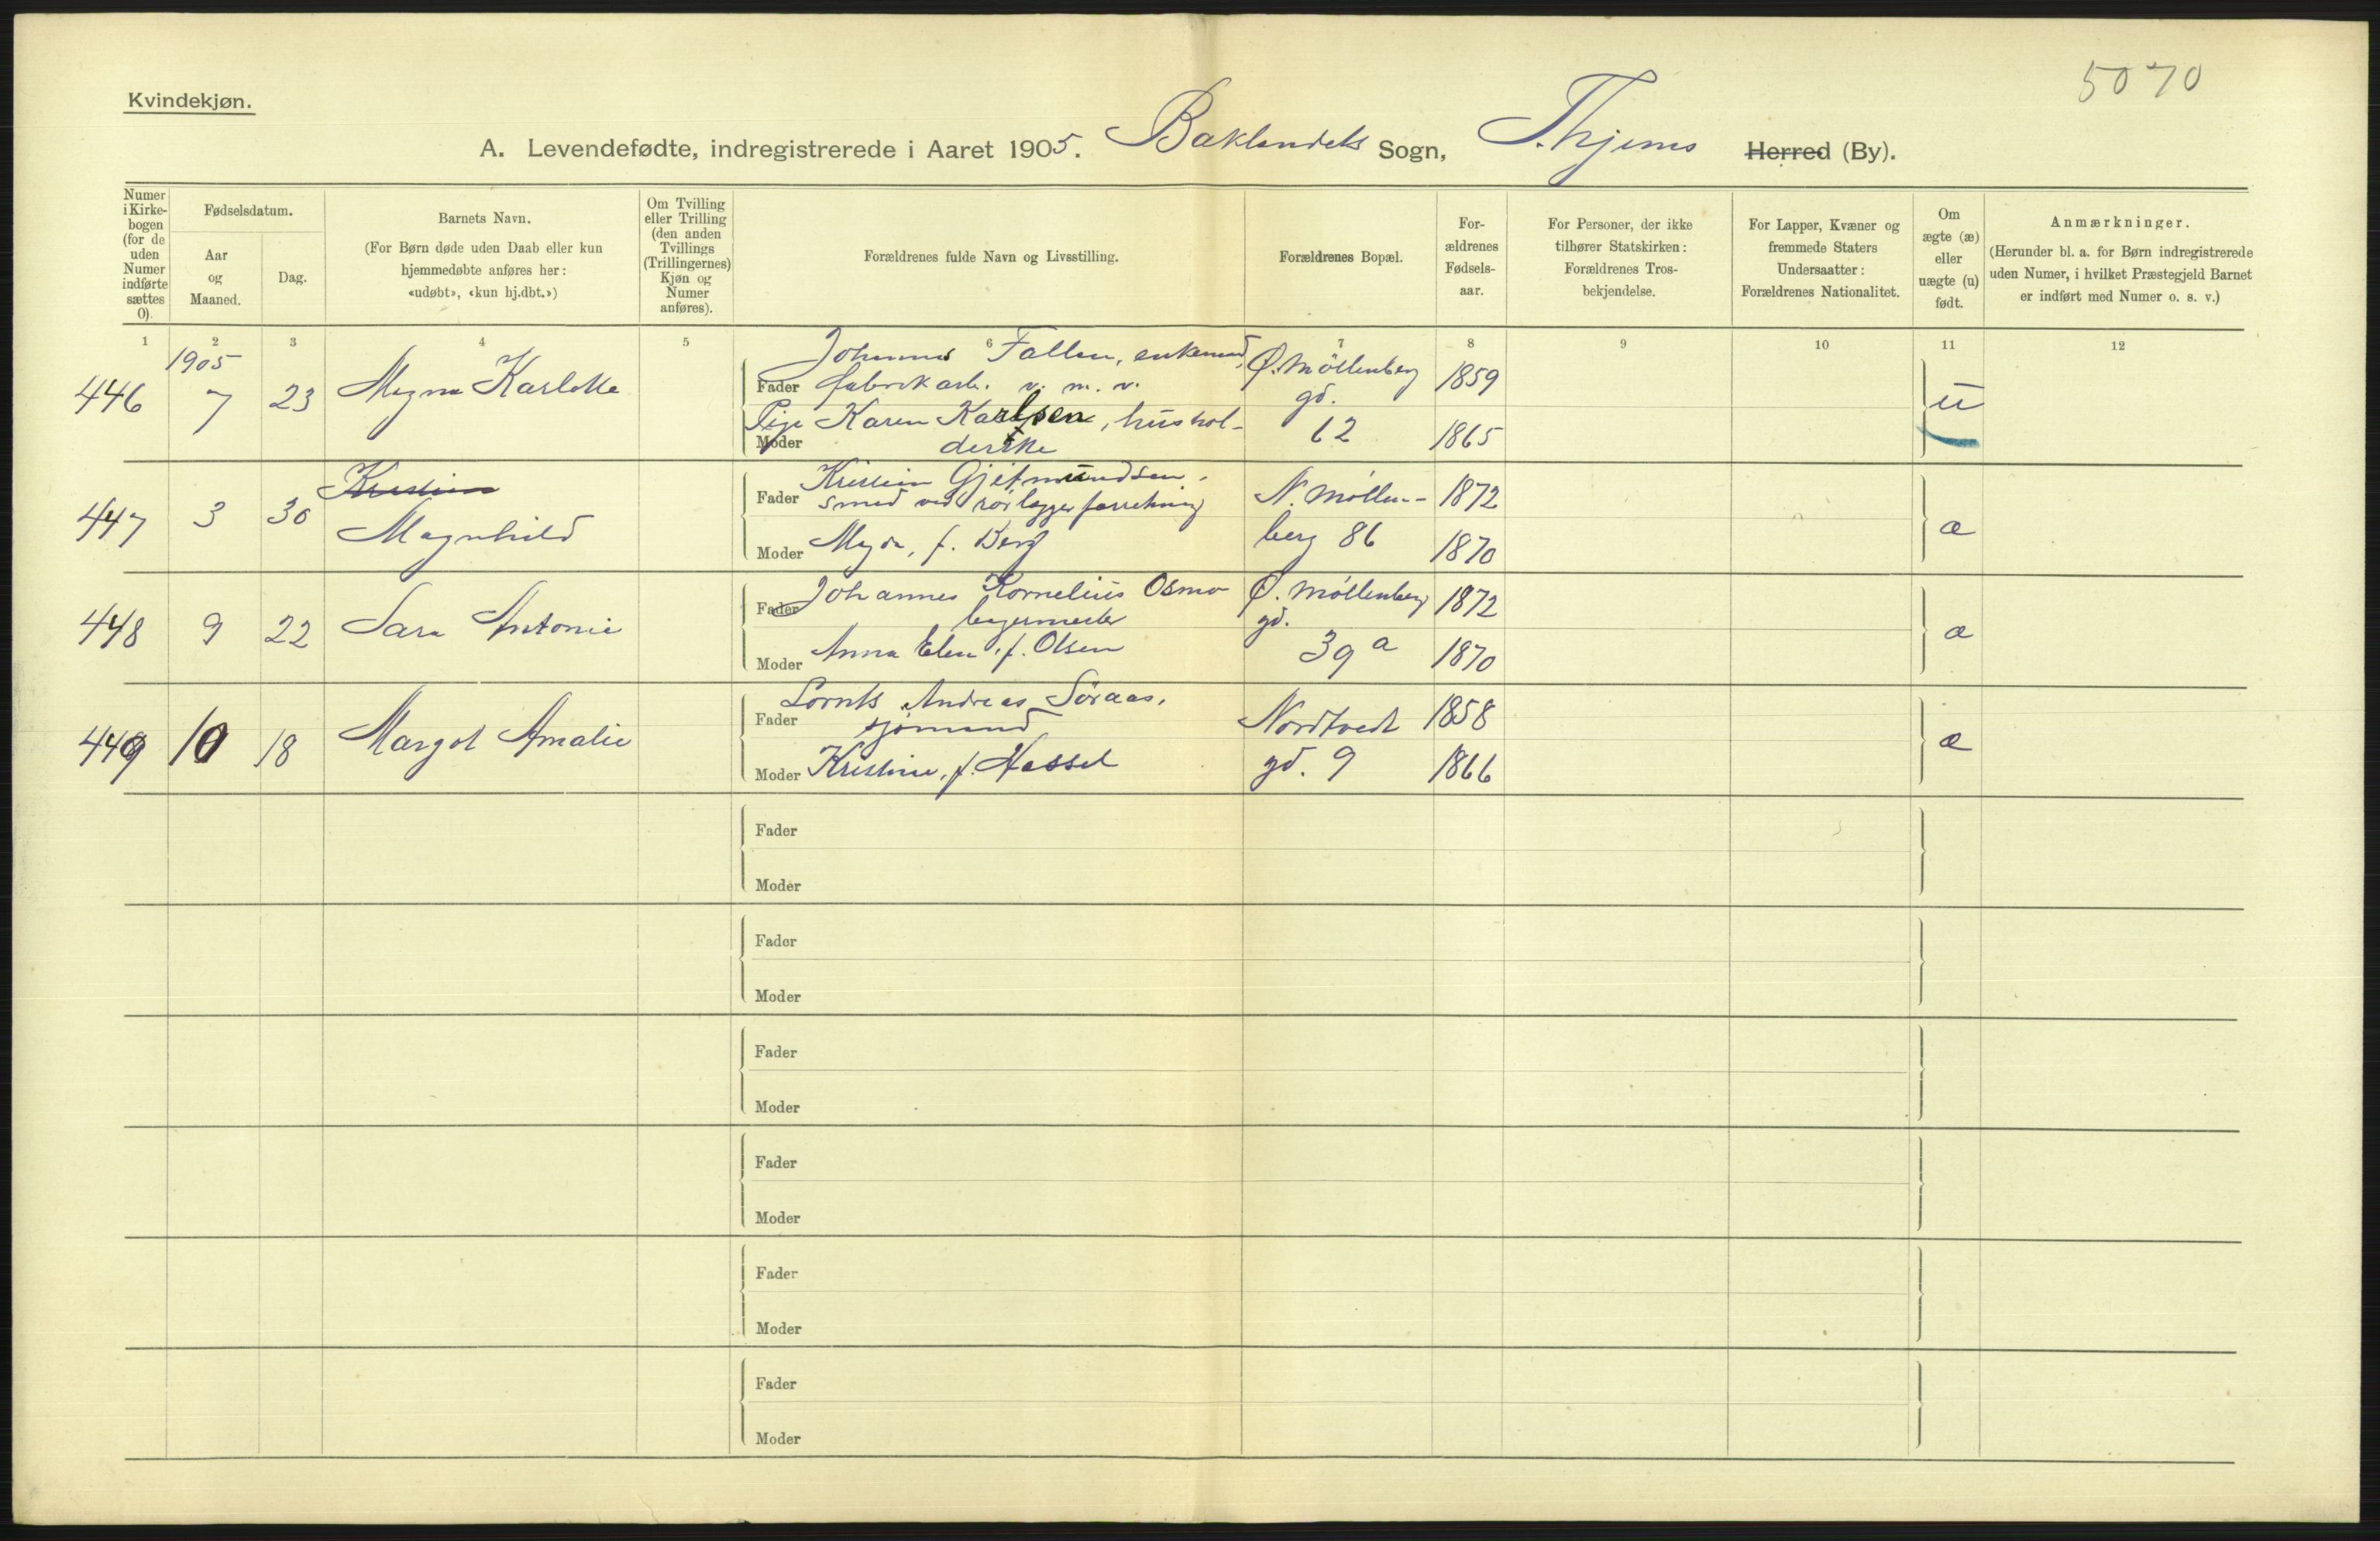 5070
Kvindekjøn.
A. Levendefødte, indregistrerede i Aaret 1905. Baklandets Sogn, T.hjems Herred (By).
Numer i Kirke-bogen (for de uden Numer indførte sættes 0).
Fødselsdatum.
Aar og Maaned.
Dag.
Barnets Navn.
(For Børn døde uden Daab eller kun hjemmedøbte anføres her: «udøbt», «kun hj.dbt.»)
Om Tvilling eller Trilling (den anden Tvillings (Trillingernes) Kjøn og Numer anføres).
Forældrenes fulde Navn og Livsstilling.
Forældrenes Bopæl.
For-ældrenes Fødsels-aar.
For Personer, der ikke tilhører Statskirken: Forældrenes Tros-bekjendelse.
For Lapper, Kvæner og fremmede Staters Undersaatter: Forældrenes Nationalitet.
Om ægte (æ) eller uægte (u) født.
Anmærkninger.
(Herunder bl. a. for Børn indregistrerede uden Numer, i hvilket Præstegjeld Barnet er indført med Numer o. s. v.)
1 2 3 4 5 6 7 8 9 10 11 12
1905
446 7 23 Magna Karlotta
Johannes Fallen, enkemand,
Fader fabrikarb. v. m. v.
Ø. Möllenberg gd. 62
1859
Pige Karen Karlsen, hushol-
Moder derske
1865
u
447 3 30 Kristine Magnhild
Kristian Gjetmundsen,
Fader smed ved rörlæggerforretning
N. Möllen-
1872
Moder Magda, f. Berg
berg 86
1870
æ
448 9 22 Sara Antonie
Fader Johannes Kornelius Osmo
bagermester
Ø. Möllenberg gd. 39 a
1872
Moder Anna Elen, f. Olsen
1870
æ
449 10 18 Margot Amalie
Lornts Andreas Söraas,
Fader sjömand
Nordtvedt
1858
Moder Kristine, f. Hassel
gd. 9
1866
æ
Fader
Moder
Fader
Moder
Fader
Moder
Fader
Moder
Fader
Moder
Fader
Moder